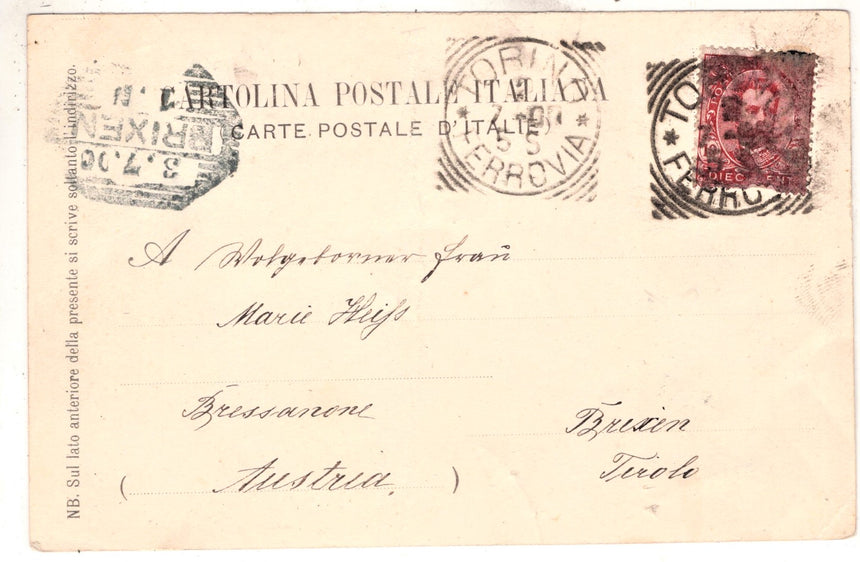 CARTOLINA POSTALE ITALIANA
CARTE POSTALE D'ITALIE
TORINO
FERROVIA
TO
FERRO
DIECI CEN
BRIXEN
3.7.00
A Wolgeborner Frau
Marie Heiss
Bressanone
Brixen
(Austria.)
Tirolo
NB. Sul lato anteriore della presente si scrive soltanto l'indirizzo.